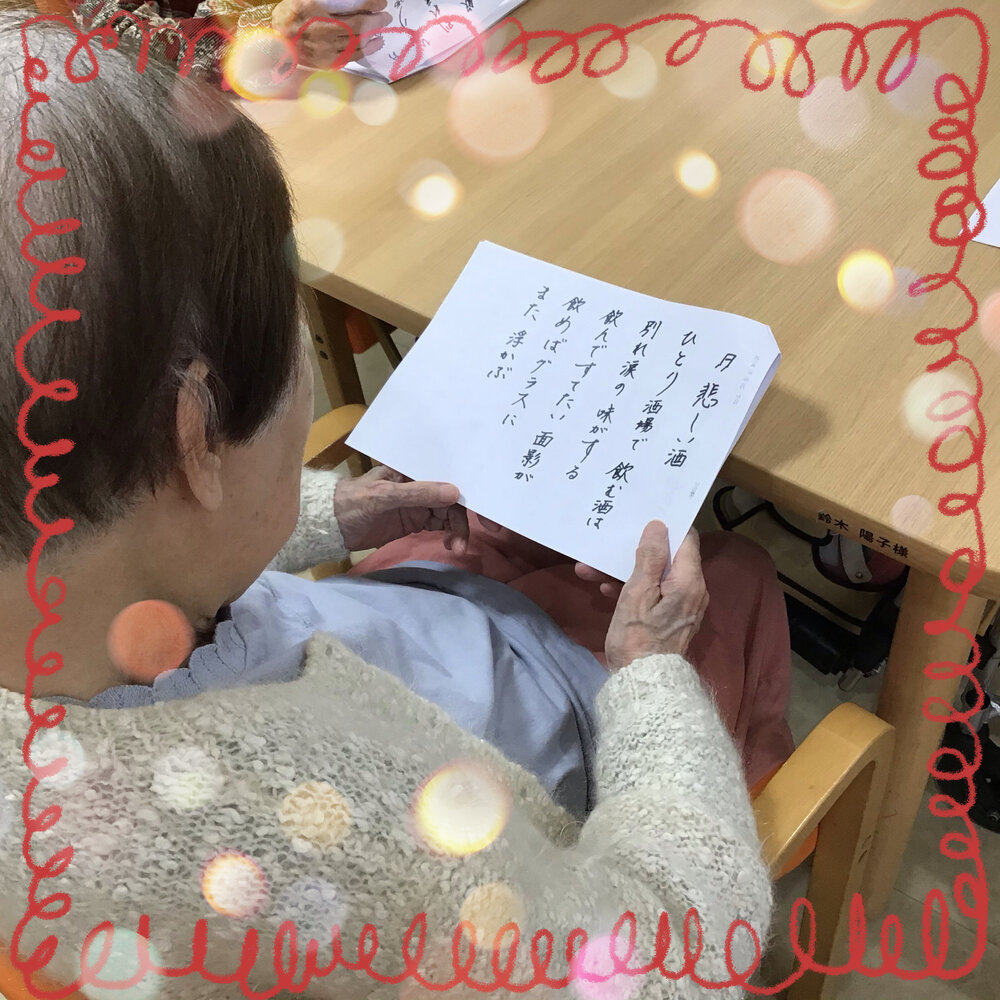 月 悲しい酒
ひとり 酒場で 飲む酒は
別れ涙の 味がする
飲んですてたい 面影が
飲めばグラスに
また 浮かぶ
鈴木 陽子様